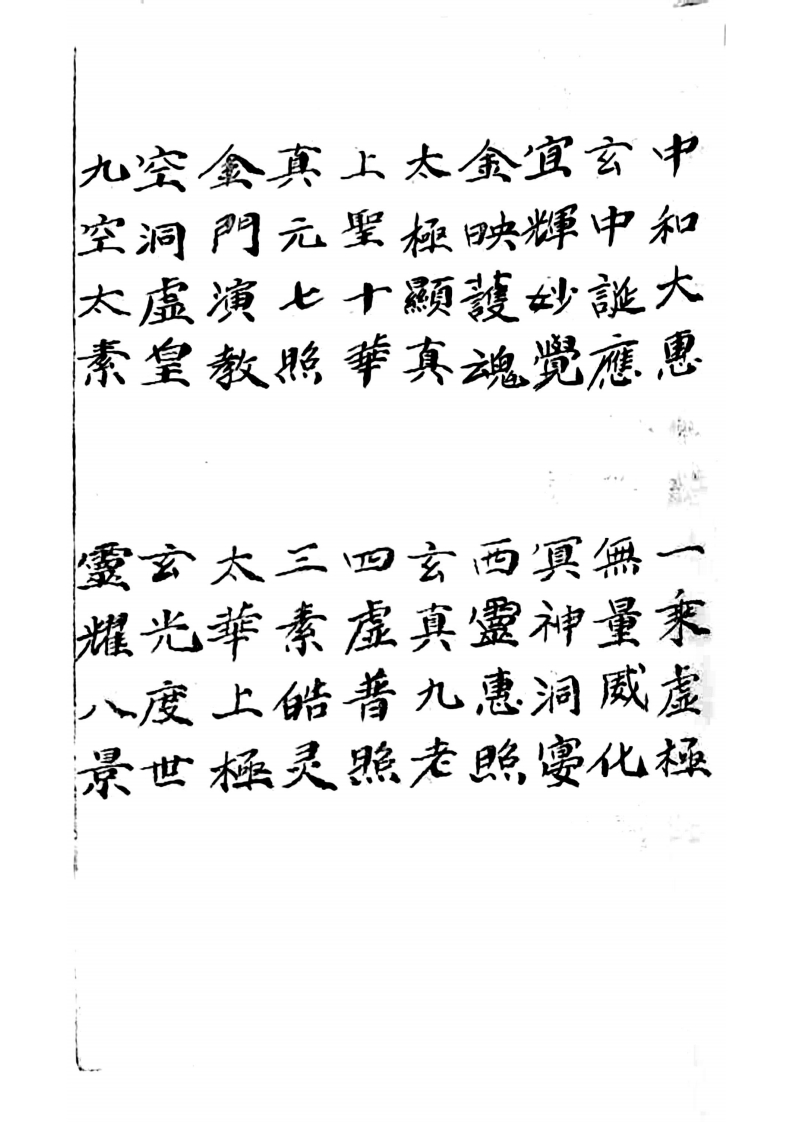 中和大惠　一乘虛極
玄中誕應　無量威化
宜輝妙覺　冥神洞寥
金映護魂　西靈惠照
太極顯真　玄真九老
上聖十華　四虛普照
真元七照　三素皓灵
金門演教　太華上極
空洞虛皇　玄光度世
九空太素　靈耀八景